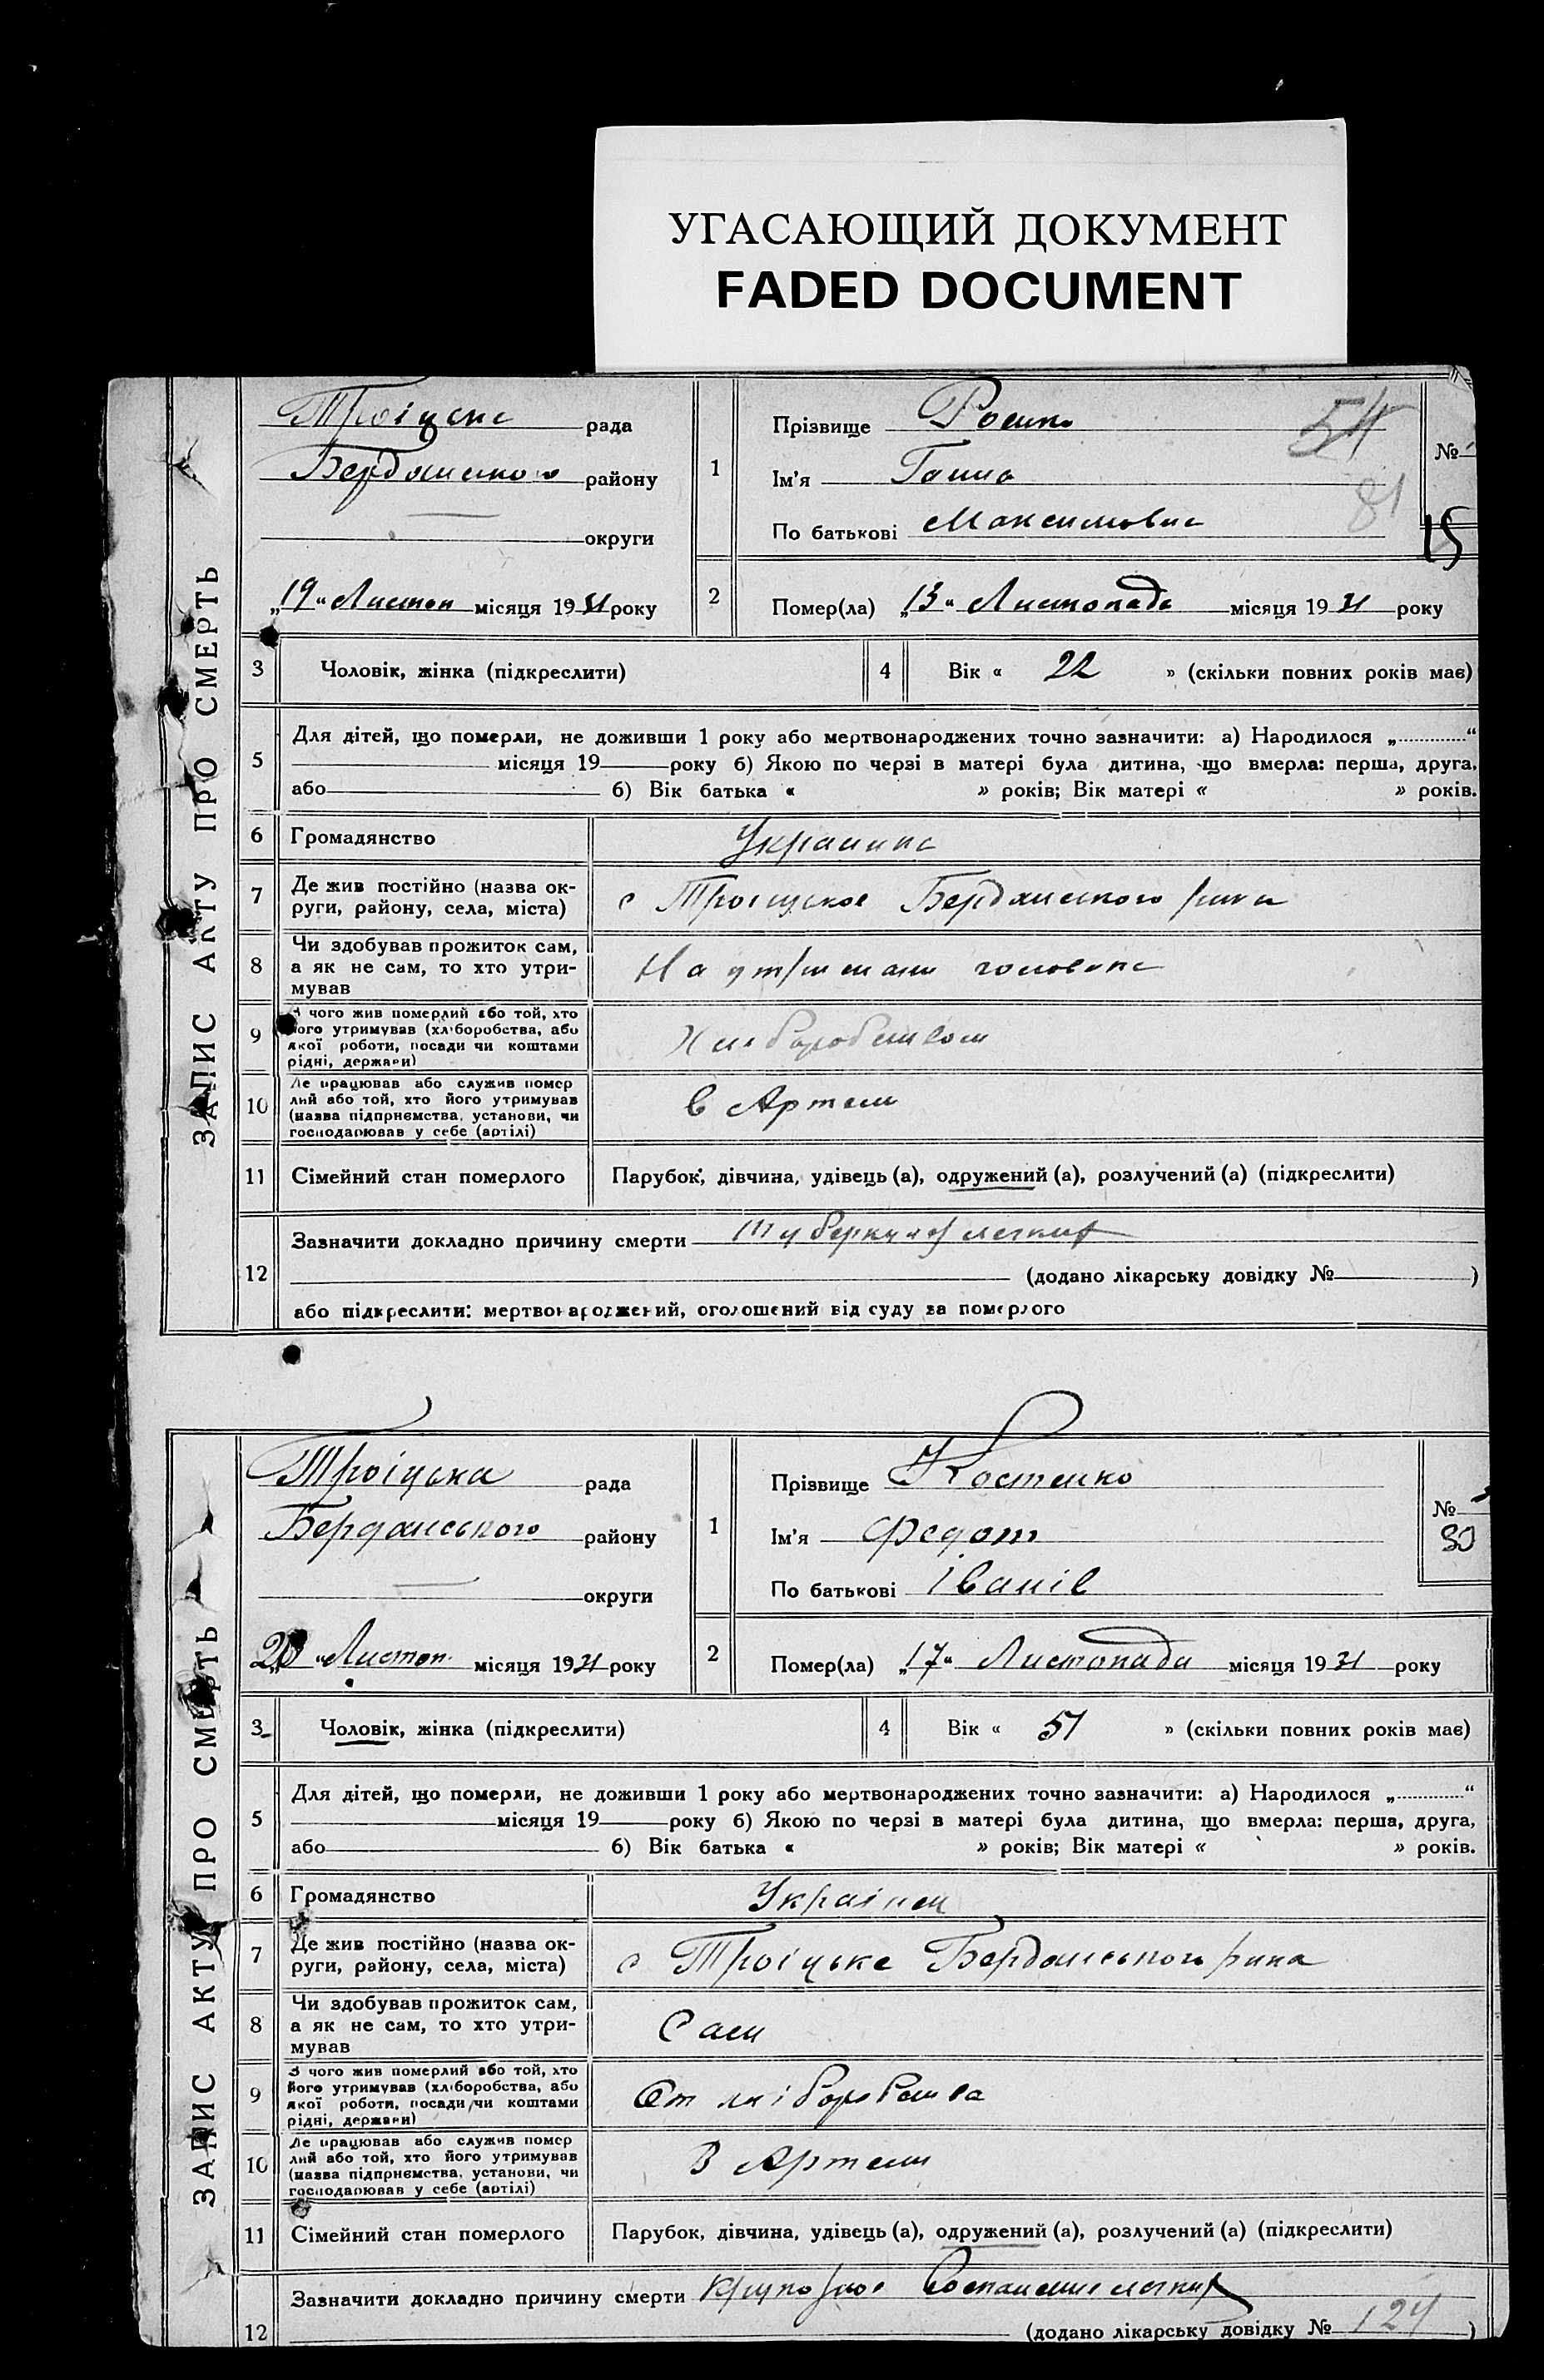 УГАСАЮЩИЙ ДОКУМЕНТ
FADED DOCUMENT
ЗАПИС АКТУ ПРО СМЕРТЬ
Троіцьке рада
Бердянського району
округи
„19“ Листоп місяця 1931 року
1
Прізвище
Ім'я Ганна
По батькові Максимовна
54
81
№
15
2
Помер(ла) „13“ Листопада місяця 1931 року
3 Чоловік, жінка (підкреслити)
4 Вік « 22 » (скільки повних років має)
5 Для дітей, що померли, не доживши 1 року або мертвонароджених точно зазначити: а) Народилося „ “
місяця 19 року б) Якою по черзі в матері була дитина, що вмерла: перша, друга,
або б) Вік батька « » років; Вік матері « » років.
6 Громадянство Украинка
7 Де жив постійно (назва ок-
руги, району, села, міста)
с Троицкое Бердянского
8 Чи здобував прожиток сам,
а як не сам, то хто утри-
мував
На
9 З чого жив померлий або той, хто
його утримував (хліборобства, або
якої роботи, посади чи коштами
рідні, держави)
10 Де працював або служив помер
лий або той, хто його утримував
(назва підприємства, установи, чи
господарював у себе (артілі)
в Артели
11 Сімейний стан померлого
Парубок, дівчина, удівець (а), одружений (а), розлучений (а) (підкреслити)
12 Зазначити докладно причину смерти Туберкулез легких
(додано лікарську довідку № )
або підкреслити: мертвонароджений, оголошений від суду за померлого
ЗАПИС АКТУ ПРО СМЕРТЬ
Троіцька рада
Бердянського району
округи
„20“ Листоп. місяця 1931 року
1
Прізвище Костенко
Ім'я Федот
По батькові Іванів
№
30
2
Помер(ла) „17“ Листопада місяця 1931 року
3 Чоловік, жінка (підкреслити)
4 Вік « 51 » (скільки повних років має)
5 Для дітей, що померли, не доживши 1 року або мертвонароджених точно зазначити: а) Народилося „ “
місяця 19 року б) Якою по черзі в матері була дитина, що вмерла: перша, друга,
або б) Вік батька « » років; Вік матері « » років.
6 Громадянство Українец
7 Де жив постійно (назва ок-
руги, району, села, міста)
с Троіцьке Бердянського
8 Чи здобував прожиток сам,
а як не сам, то хто утри-
мував
Сам
9 З чого жив померлий або той, хто
його утримував (хліборобства, або
якої роботи, посади чи коштами
рідні, держави)
От хліборобства
10 Де працював або служив помер
лий або той, хто його утримував
(назва підприємства, установи, чи
господарював у себе (артілі)
В Артели
11 Сімейний стан померлого
Парубок, дівчина, удівець (а), одружений (а), розлучений (а) (підкреслити)
12 Зазначити докладно причину смерти Крупозное воспаление легких
(додано лікарську довідку № 124 )